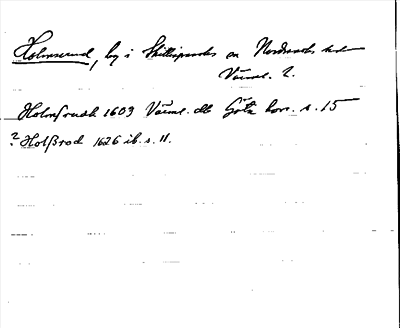 Holmserud, by i Skillingmarks sn Nordmarks hd
Värml. l.
Holmsrudh 1603 Värml. db Göta hovr. s. 15
? Holßrod 1626 ib. s. 11.